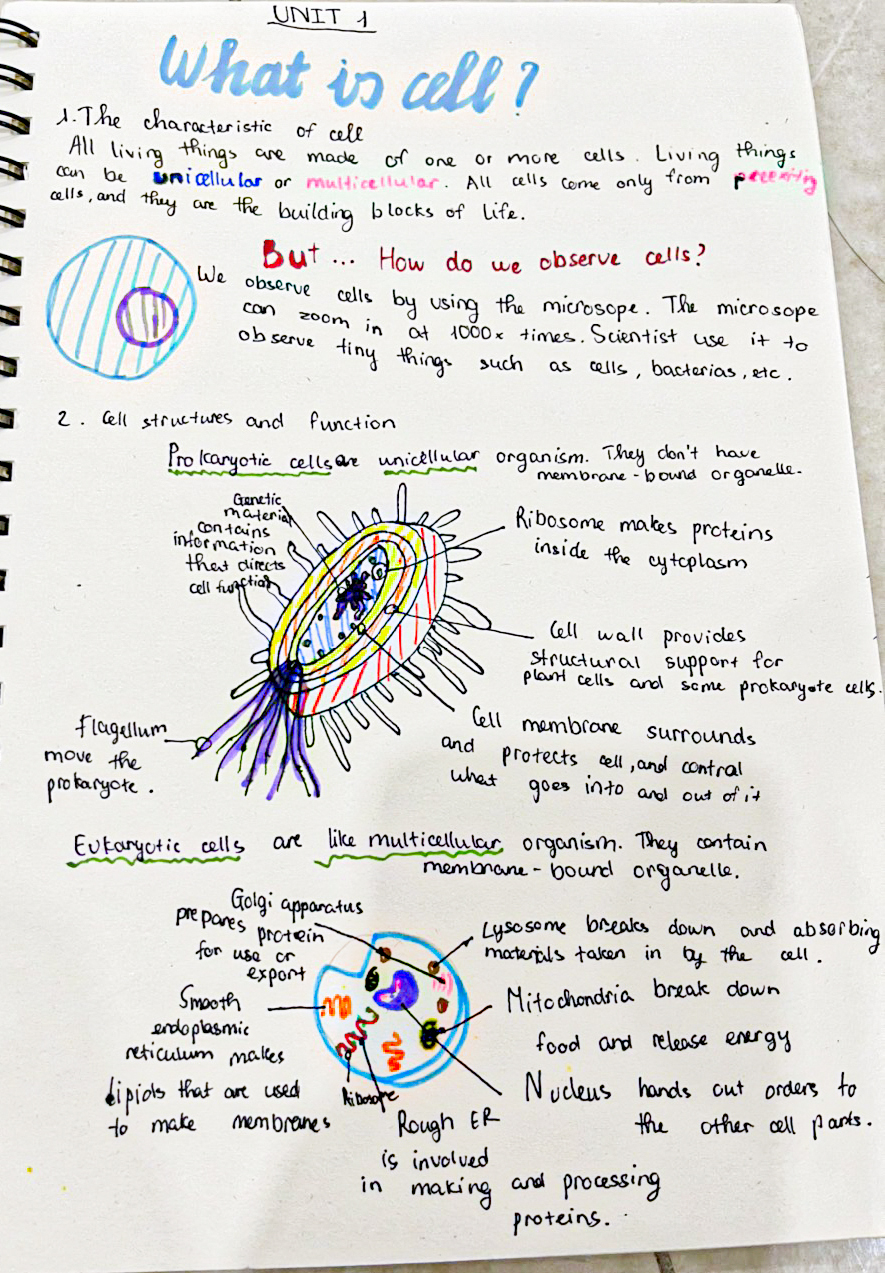 UNIT 1
What is cell?
1. The characteristic of cell
All living things are made of one or more cells. Living things
can be unicellular or multicellular. All cells come only from
cells, and they are the building blocks of life.
But ... How do we observe cells?
We observe cells by using the microsope. The microsope
can zoom in at 1000x times. Scientist use it to
observe tiny things such as cells, bacterias, etc.
2. Cell structures and function
Prokaryotic cells are unicellular organism. They don't have
membrane-bound organelle.
Genetic
material
contains
information
that directs
cell function
Ribosome makes proteins
inside the cytoplasm
Cell wall provides
structural support for
plant cells and some prokaryote cells.
Cell membrane surrounds
and protects cell, and control
what goes into and out of it
Flagellum
move the
prokaryote.
Eukaryotic cells are like multicellular organism. They contain
membrane-bound organelle.
Golgi apparatus
prepares protein
for use or
export
Lysosome breaks down and absorbing
materials taken in by the cell.
Smooth
endoplasmic
reticulum makes
lipids that are used
to make membranes
Mitochondria break down
food and release energy
Nucleus hands out orders to
the other cell parts.
Ribosome
Rough ER
is involved
in making and processing
proteins.